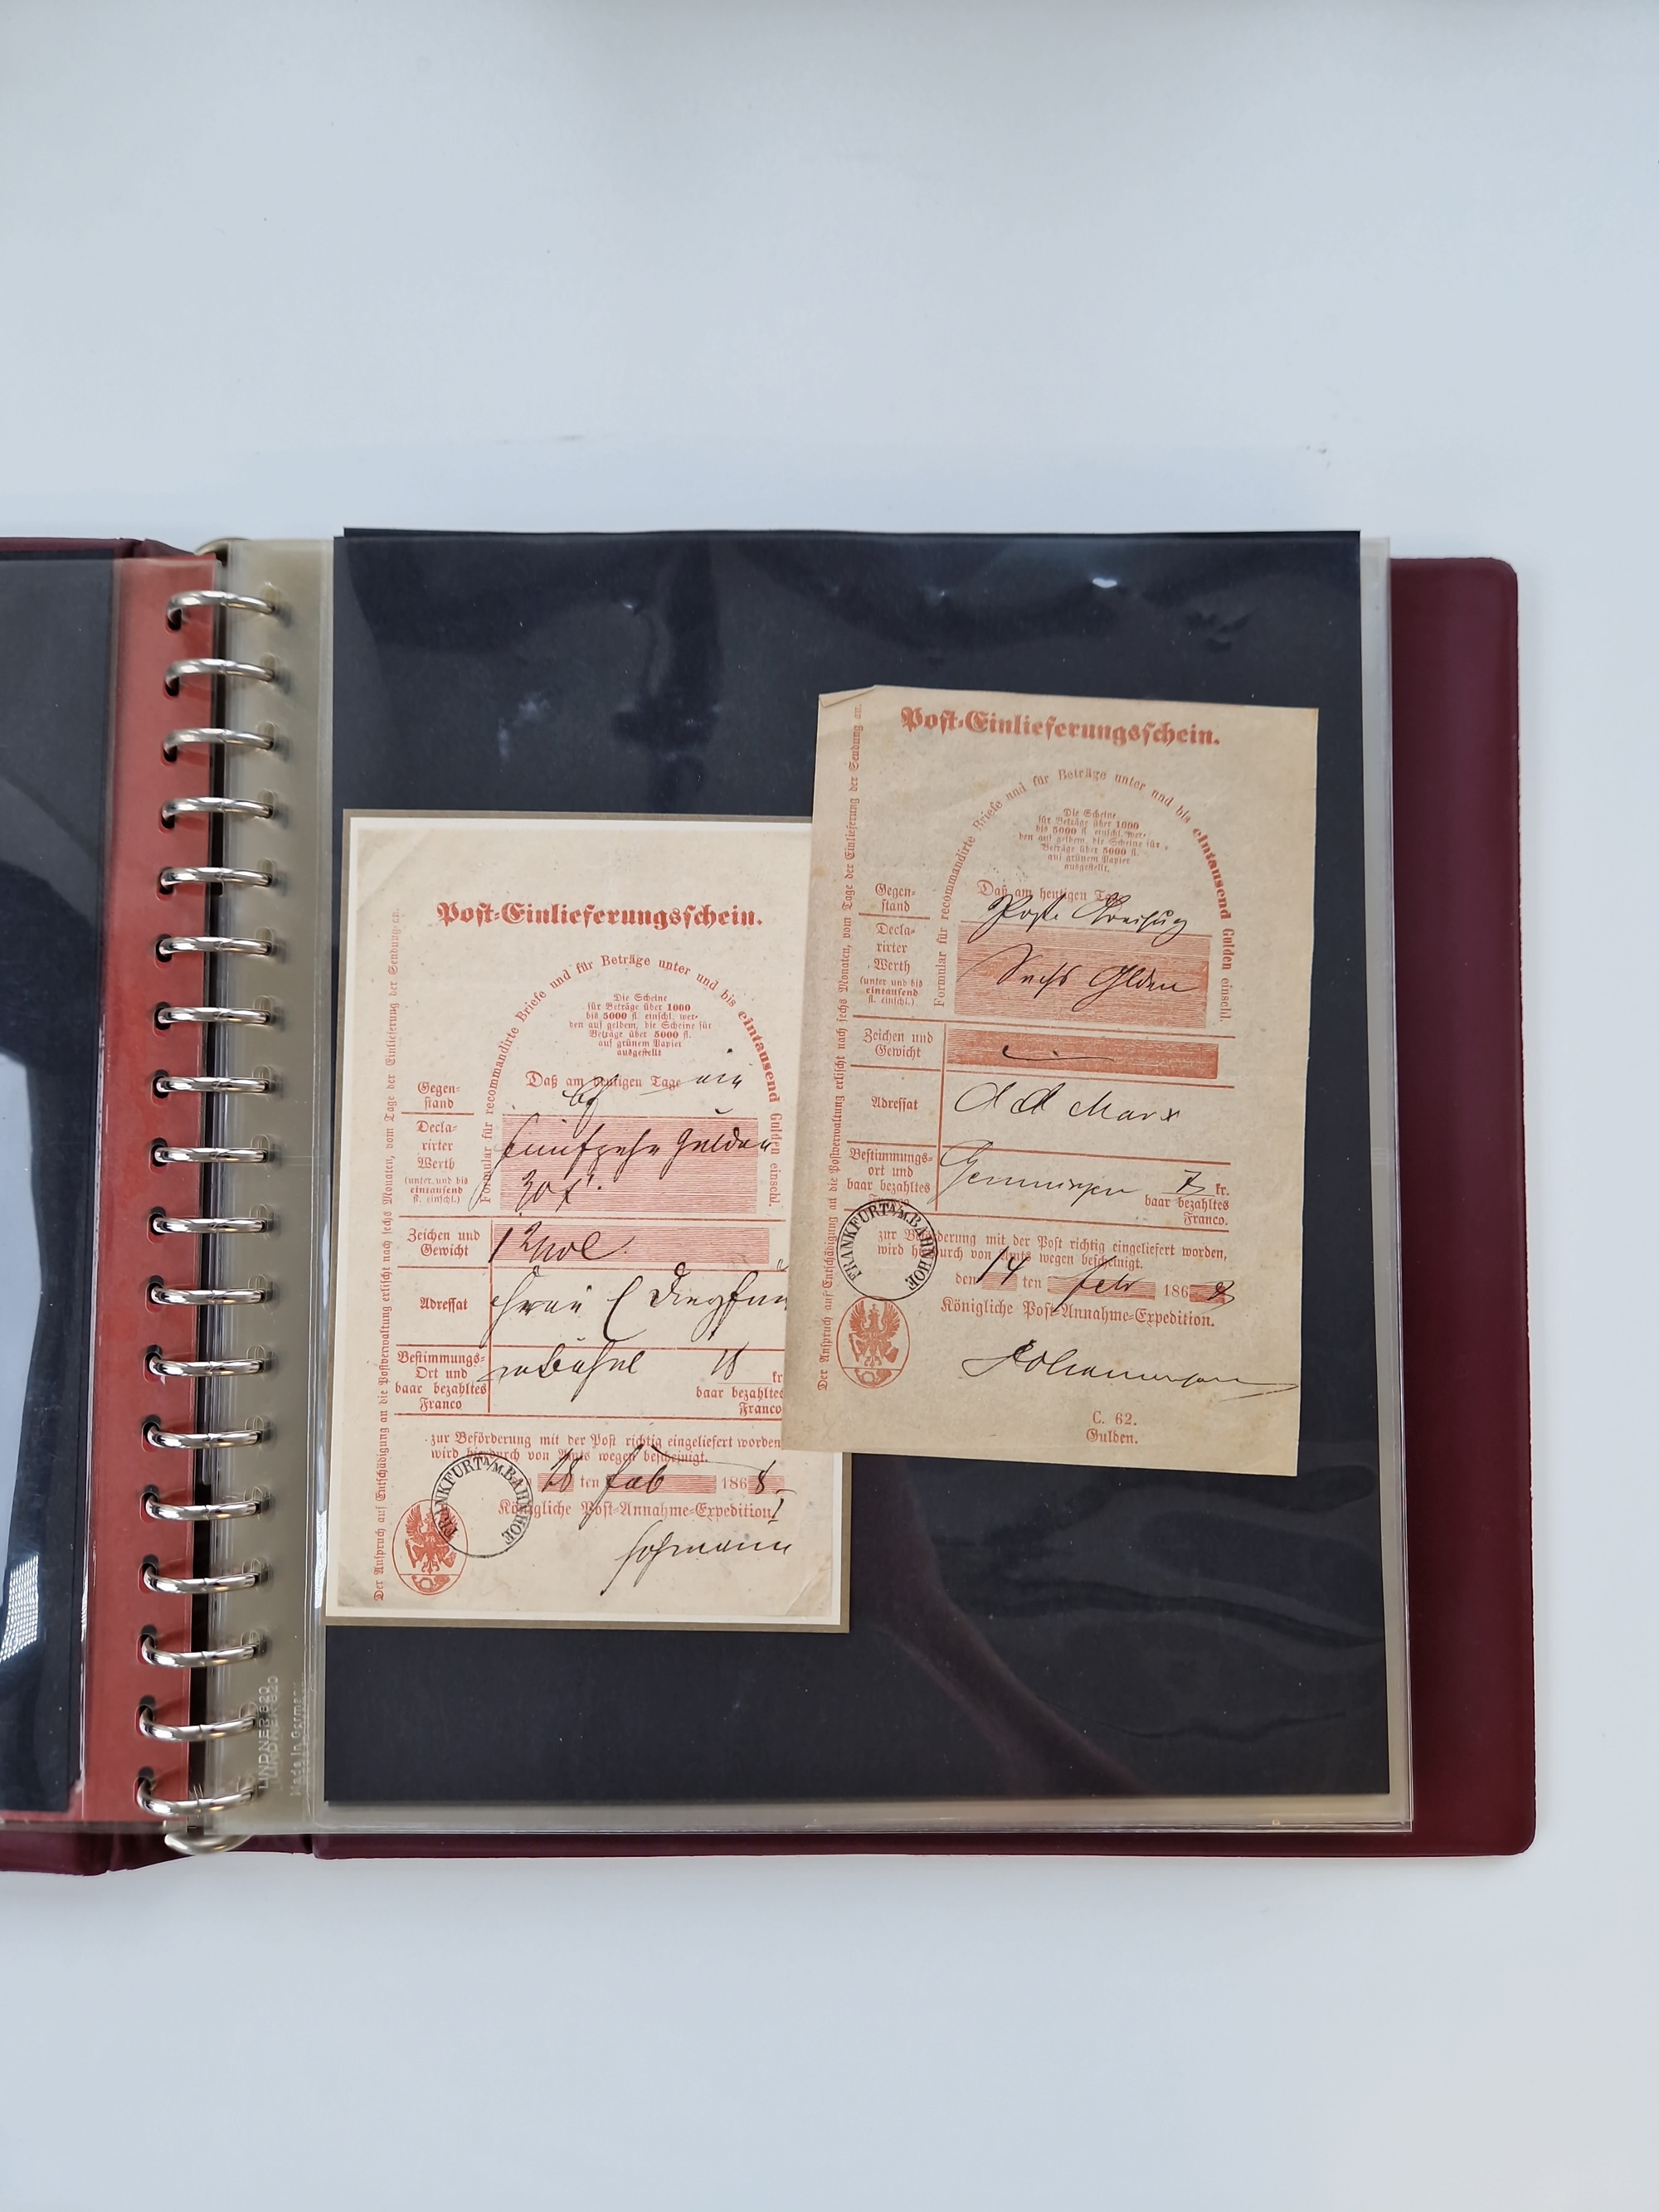 Post-Einlieferungsschein.
Formular für recommandirte Briefe und für Beträge unter und bis eintausend Gulden einschl.
Die Scheine
für Beträge über 1000
bis 5000 fl. einschl. wer-
den auf gelbem, die Scheine für
Beträge über 5000 fl.
auf grünem Papier
ausgestellt
Daß am heutigen Tage ein
Gegen-
stand
Decla-
rirter
Werth
(unter und bis
eintausend
fl. einschl.)
fünfzehn Gulden
Zeichen und
Gewicht
Adressat
Frau C
Bestimmungs-
Ort und
baar bezahltes
Franco
18 kr
baar bezahltes
Franco.
zur Beförderung mit der Post richtig eingeliefert worden
wird hierdurch von Amts wegen bescheinigt.
28 ten Feb 1868
Königliche Post-Annahme-Expedition
Hofmann
FRANKFURT A/M. BAHNHOF
Der Anspruch auf Entschädigung an die Postverwaltung erlischt nach sechs Monaten, vom Tage der Einlieferung der Sendung an.
Post-Einlieferungsschein.
Formular für recommandirte Briefe und für Beträge unter und bis eintausend Gulden einschl.
Die Scheine
für Beträge über 1000
bis 5000 fl. einschl. wer-
den auf gelbem, die Scheine für
Beträge über 5000 fl.
auf grünem Papier
ausgestellt.
Daß am heutigen Tage
Gegen-
stand
Post
Decla-
rirter
Werth
(unter und bis
eintausend
fl. einschl.)
Sechs Gulden
Zeichen und
Gewicht
Adressat
Marx
Bestimmungs-
ort und
baar bezahltes
Gemmingen 7 kr.
baar bezahltes
Franco.
zur Beförderung mit der Post richtig eingeliefert worden,
wird hierdurch von Amts wegen bescheinigt.
den 14 ten Febr 1868
Königliche Post-Annahme-Expedition.
FRANKFURT A/M. BAHNHOF
C. 62.
Gulden.
Der Anspruch auf Entschädigung an die Postverwaltung erlischt nach sechs Monaten, vom Tage der Einlieferung der Sendung an.
LINDNER 820
Made in Germany